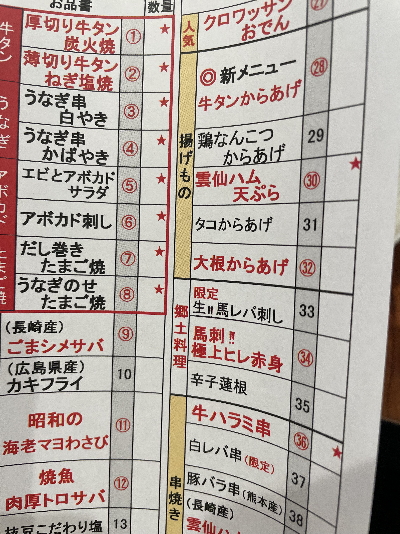 お品書
数量
牛タン
厚切り牛タン
炭火焼
①
★
薄切り牛タン
ねぎ塩焼
②
★
うなぎ
うなぎ串
白やき
③
★
うなぎ串
かばやき
④
★
アボカド
エビとアボカド
サラダ
⑤
★
アボカド刺し
⑥
★
たまご焼
だし巻き
たまご焼
⑦
★
うなぎのせ
たまご焼
⑧
★
(長崎産)
ごまシメサバ
⑨
(広島県産)
カキフライ
10
昭和の
海老マヨわさび
⑪
焼魚
肉厚トロサバ
⑫
枝豆こだわり塩
13
人気
クロワッサン
おでん
㉗
揚げもの
◎新メニュー
牛タンからあげ
㉘
鶏なんこつ
からあげ
29
雲仙ハム
天ぷら
㉚
★
タコからあげ
31
大根からあげ
㉜
郷土料理
限定
生!!馬レバ刺し
33
馬刺!!
極上ヒレ赤身
㉞
辛子蓮根
35
串焼き
牛ハラミ串
㊱
★
白レバ串(限定)
37
豚バラ串(熊本産)
38
(長崎産)
雲仙ハム